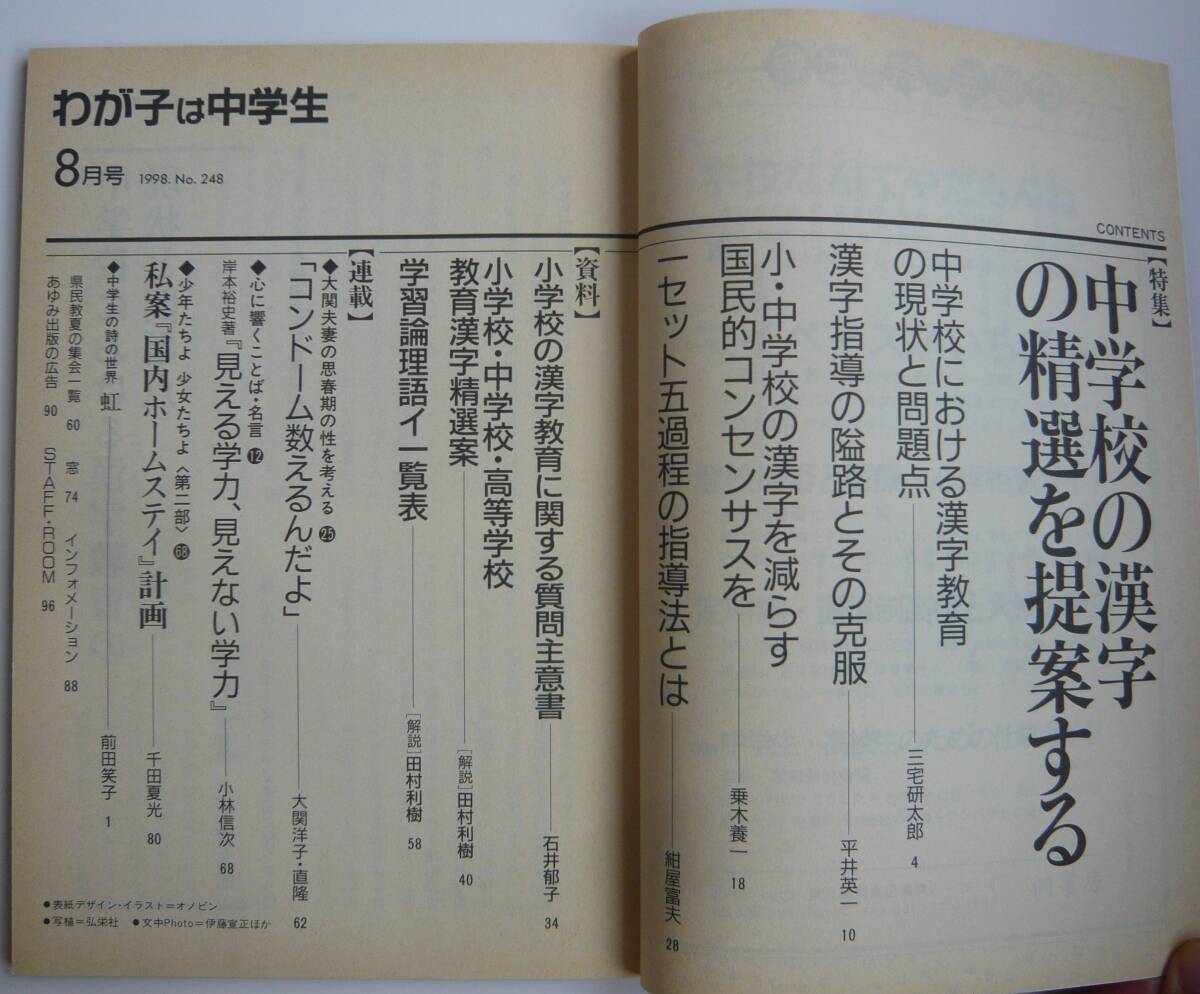 CONTENTS
【特集】
中学校の漢字
の精選を提案する
中学校における漢字教育
の現状と問題点
三宅研太郎 4
漢字指導の隘路とその克服
平井英一 10
小・中学校の漢字を減らす
国民的コンセンサスを
乗木養一 18
一セット五過程の指導法とは
紺屋富夫 28
わが子は中学生
8月号 1998. No. 248
【資料】
小学校の漢字教育に関する質問主意書
石井郁子 34
小学校・中学校・高等学校
教育漢字精選案
[解説]田村利樹 40
学習論理語イ一覧表
[解説]田村利樹 58
【連載】
◆大関夫妻の思春期の性を考える 25
「コンドーム数えるんだよ」
大関洋子・直隆 62
◆心に響くことば・名言 12
岸本裕史著『見える学力、見えない学力』
小林信次 68
◆少年たちよ 少女たちよ〈第二部〉 68
私案『国内ホームステイ』計画
千田夏光 80
◆中学生の詩の世界 虹
前田笑子 1
県民教夏の集会一覧 60 窓 74 インフォメーション 88
あゆみ出版の広告 90 STAFF・ROOM 96
●表紙デザイン・イラスト=オノビン
●写植=弘栄社 ●文中Photo=伊藤宣正ほか